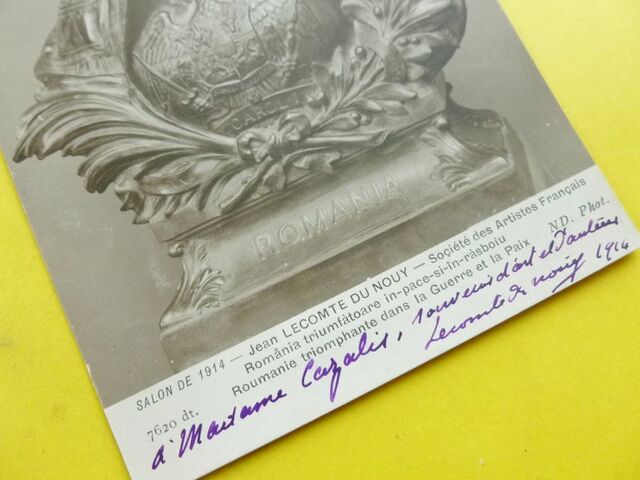 CAROL I
ROMANIA
SALON DE 1914 — Jean LECOMTE DU NOUY — Société des Artistes Français
România triumfătoare in-pace-si-in-răsboiu
Roumanie triomphante dans la Guerre et la Paix
ND. Phot.
7620 dt.
à Madame Cazalis, souvenir d'art et d'
Lecomte du nouy 1914